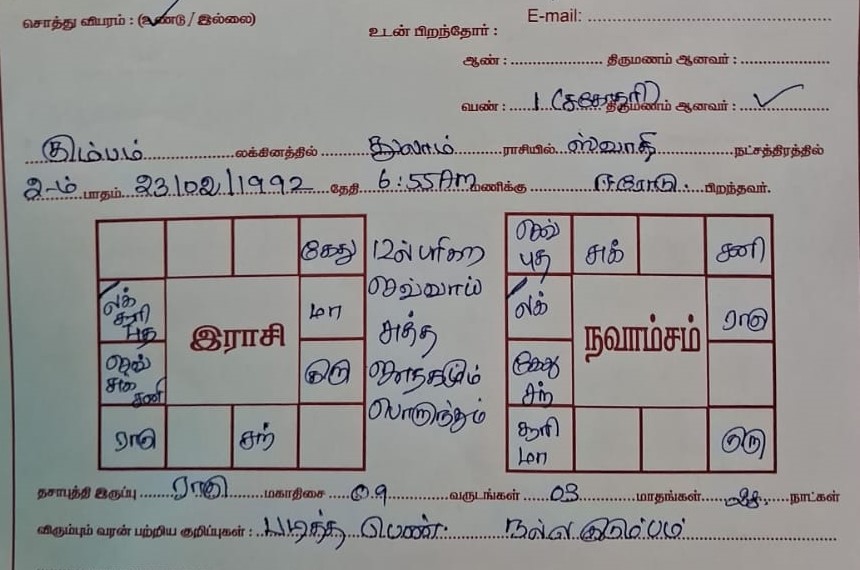 சொத்து விபரம் : (உண்டு / இல்லை)
E-mail:
உடன் பிறந்தோர் :
ஆண் : திருமணம் ஆனவர் :
பெண் : 1 (சகோதரி) திருமணம் ஆனவர் : ✓
கும்பம் லக்கினத்தில் துலாம் ராசியில் ஸ்வாதி நட்சத்திரத்தில்
2-ம் பாதம் 23/02/1992 தேதி 6:55AM மணிக்கு ஈரோடு பிறந்தவர்.
கேது
லக் சூரி புத
மா
செவ் சுக் சனி
குரு
ராகு
சந்
இராசி
12ல் பரிகார
செவ்வாய்
சுத்த
ஜாதகமும்
பொருந்தும்
செவ் புத
சுக்
சனி
லக்
ராகு
கேது சந்
சூரி மா
குரு
நவாம்சம்
தசாபுத்தி இருப்பு ராகு மகாதிசை வருடங்கள் 03 மாதங்கள் நாட்கள்
விரும்பும் வரன் பற்றிய குறிப்புகள் : படித்த பெண். நல்ல குடும்பம்